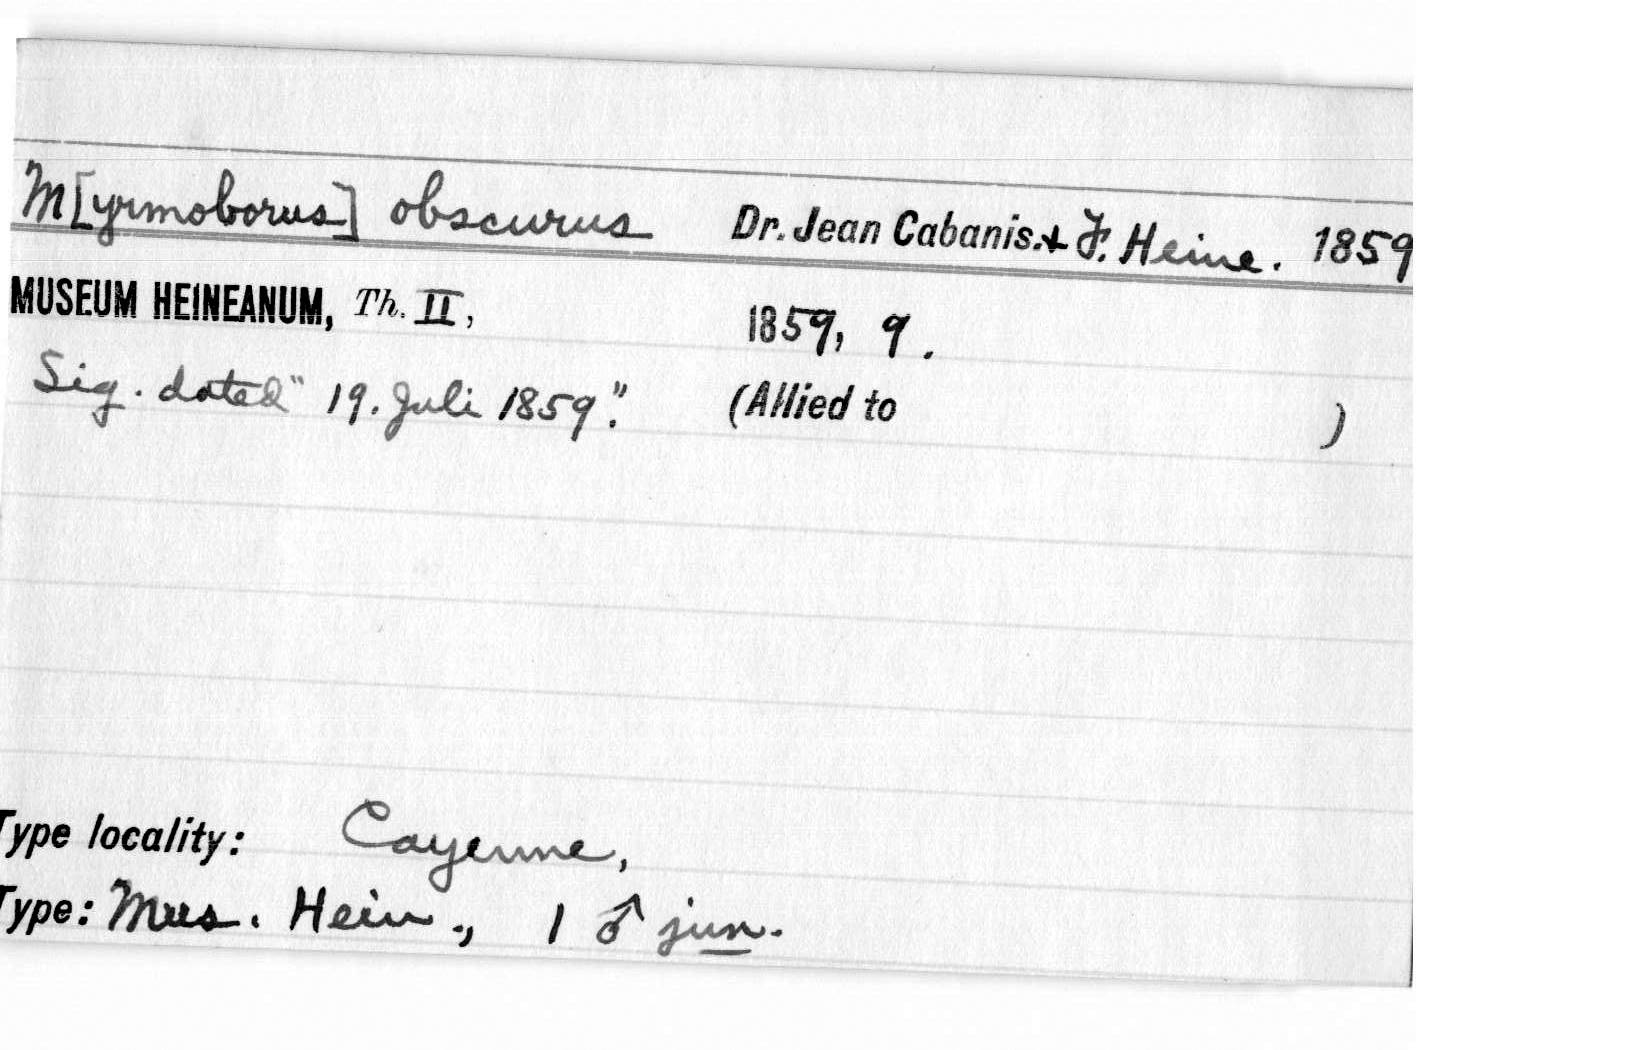 M[yrmoborus] obscurus Dr. Jean Cabanis. + F. Heine. 1859
MUSEUM HEINEANUM, Th. II, 1859, 9.
Sig. dated "19. Juli 1859." (Allied to )
Type locality: Cayenne,
Type: Mus. Hein., 1 ♂ jun.